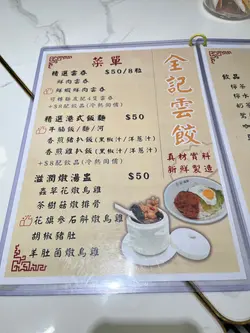 菜單
全記雲餃
精選雲吞 $50/8粒
鮮肉雲吞
鮮蝦鮮肉雲吞
可轉麵皮配4隻雲吞
+$8配飲品(冷熱同價)
精選港式飯麵 $50
牛腩飯/麵/河
香煎豬扒飯(黑椒汁/洋蔥汁)
香煎雞扒飯(黑椒汁/洋蔥汁)
+$8配飲品(冷熱同價)
滋潤燉湯盅 $50
蟲草花燉烏雞
茶樹菇燉排骨
花旗參石斛燉烏雞
胡椒豬肚
羊肚菌燉烏雞
真材實料
新鮮製造
飲品